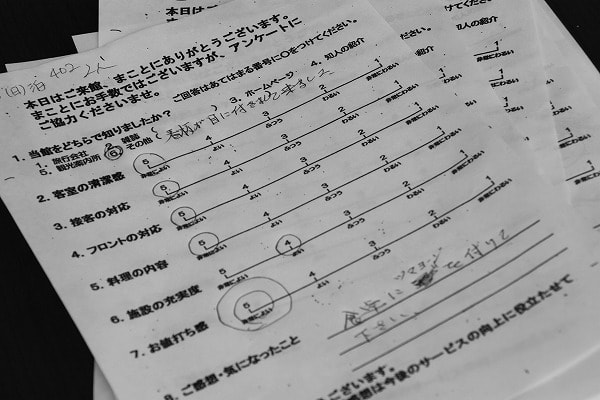 (日)泊 402 2人
本日はご来館、まことにありがとうございます。
まことにお手数ではございますが、アンケートに
ご協力くださいませ。
ご回答はあてはまる番号に〇をつけてください。
1. 当館をどちらで知りましたか?
1. 旅行会社 2. 雑誌 3. ホームページ 4. 知人の紹介
5. 観光案内所 6. その他 ( 看板が目に付きましたので来ました )
2. 客室の清潔感 5 4 3 2 1
非常によい よい ふつう わるい 非常にわるい
3. 接客の対応 5 4 3 2 1
非常によい よい ふつう わるい 非常にわるい
4. フロントの対応 5 4 3 2 1
非常によい よい ふつう わるい 非常にわるい
5. 料理の内容 5 4 3 2 1
非常によい よい ふつう わるい 非常にわるい
6. 施設の充実度 5 4 3 2 1
非常によい よい ふつう わるい 非常にわるい
7. お値打ち感 5 4 3 2 1
非常によい よい ふつう わるい 非常にわるい
8. ご感想・気になったこと
食卓に ツマヨージ を付けて
下さい。
ございます。
感想は今後のサービスの向上に役立たせて